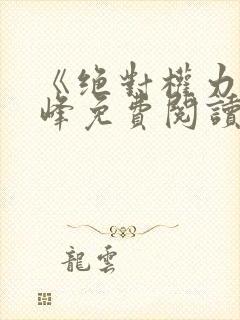 《绝對權力
峰免費閱讀
龍雲